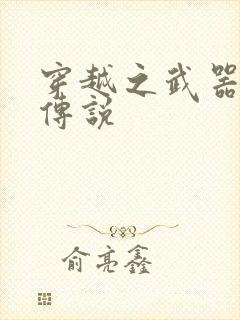 穿越之武器
傳說
俞亮鑫